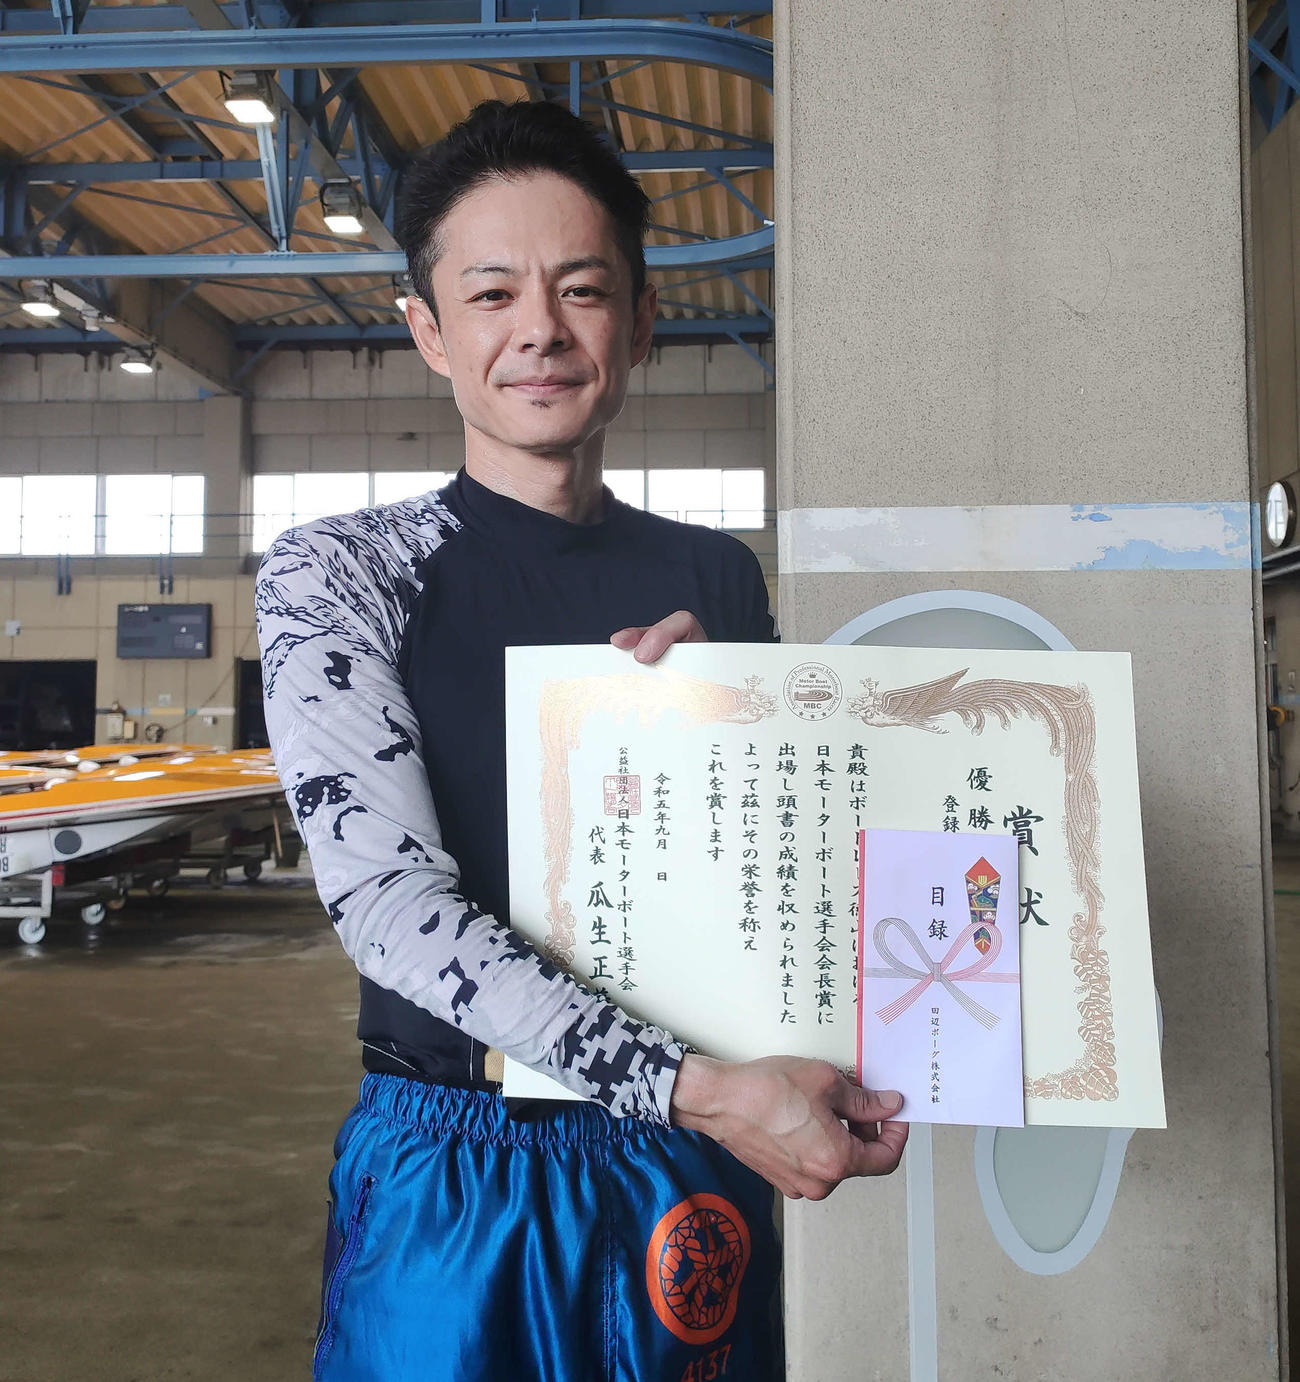 Motor Boat
Championship
MBC
賞状
優勝
登録
貴殿はボート
日本モーターボート選手会会長賞に
出場し頭書の成績を収められました
よって茲にその栄誉を称え
これを賞します
令和五年九月 日
公益社団法人日本モーターボート選手会
代表 瓜生正
目録
田辺ボーグ株式会社
4137